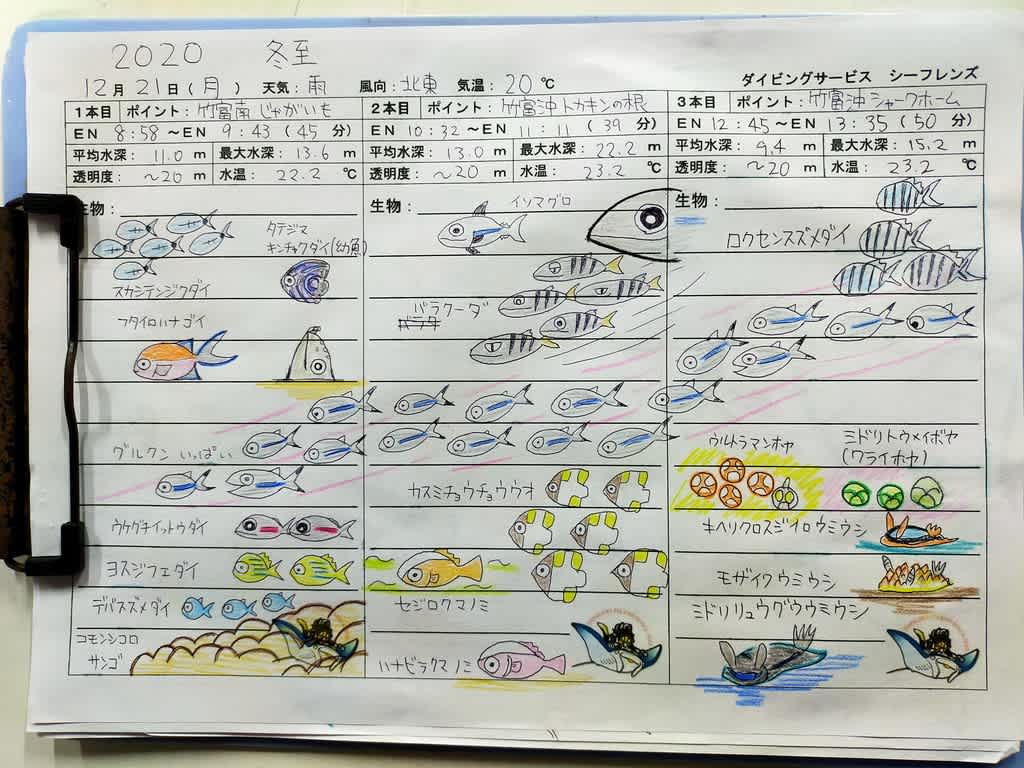 2020 冬至
12月21日(月) 天気：雨 風向：北東 気温：20℃ ダイビングサービス シーフレンズ
1本目 ポイント：竹富南 じゃがいも
EN 8:58 ～EN 9:43 (45 分)
平均水深： 11.0 m 最大水深： 13.6 m
透明度： ～20 m 水温： 22.2 ℃
生物：
タテジマ
キンチャクダイ(幼魚)
スカシテンジクダイ
フタイロハナゴイ
グルクン いっぱい
ウケグチイットウダイ
ヨスジフエダイ
デバスズメダイ
コモンシコロ
サンゴ
2本目 ポイント：竹富沖 トカキンの根
EN 10:32 ～EN 11:11 (39 分)
平均水深： 13.0 m 最大水深： 22.2 m
透明度： ～20 m 水温： 23.2 ℃
生物：
イソマグロ
バラクーダ
カスミチョウチョウウオ
セジロクマノミ
ハナビラクマノミ
3本目 ポイント：竹富沖 シャークホーム
EN 12:45 ～EN 13:35 (50 分)
平均水深： 9.4 m 最大水深： 15.2 m
透明度： ～20 m 水温： 23.2 ℃
生物：
ロクセンスズメダイ
ウルトラマンホヤ
ミドリトウメイボヤ
(ワライボヤ)
キヘリクロスジイロウミウシ
モザイクウミウシ
ミドリリュウグウウミウシ